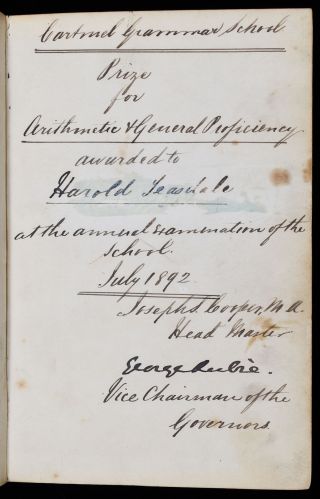 Cartmel Grammar School
Prize
for
Arithmetic & General Proficiency
awarded to
Harold Teasdale
at the annual examination of the
School.
July 1892
Joseph S. Cooper, M.A.
Head Master
George
Vice Chairman of the
Governors.